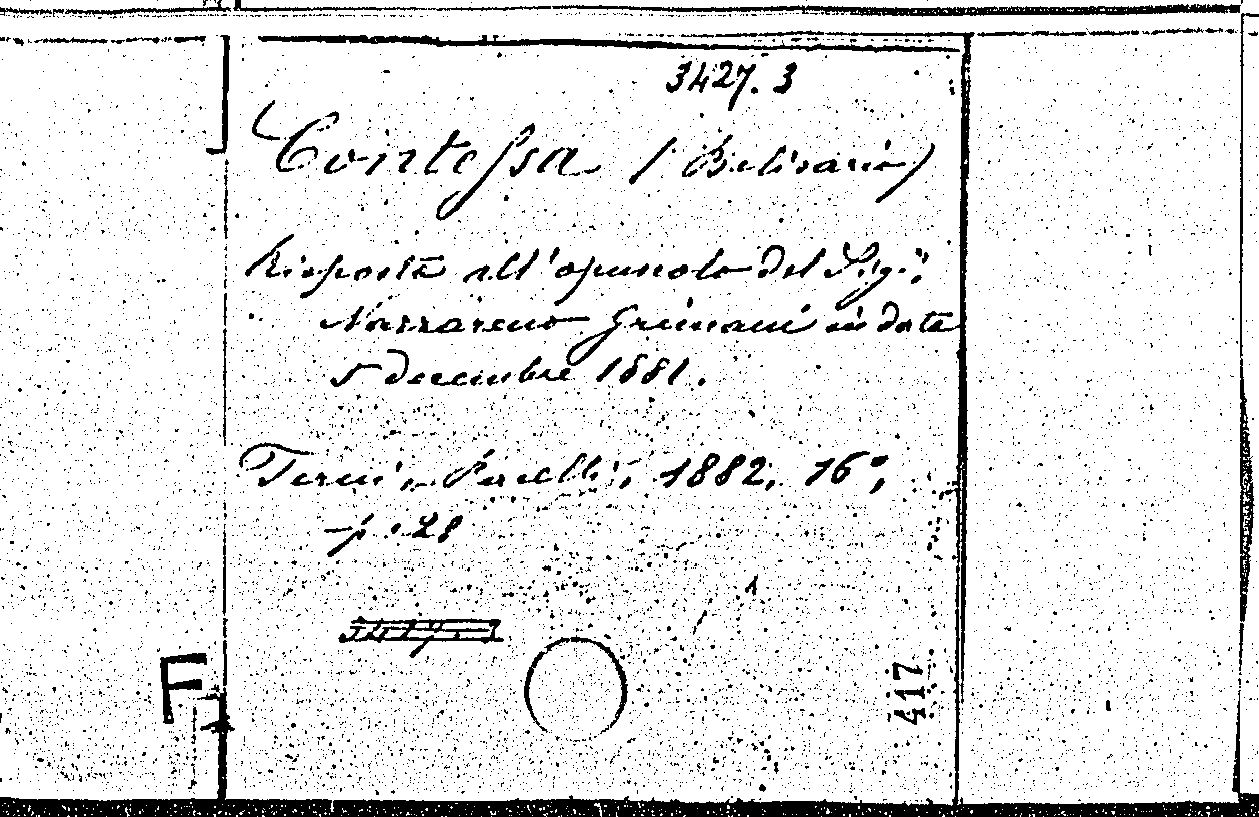 3427.3
Contessa (Belisario)
Risposta all'opuscolo del Sigr
Nazzareno Grimani in data
5 decembre 1881.
Terni, 1882, 16°,
p. 28
417
F